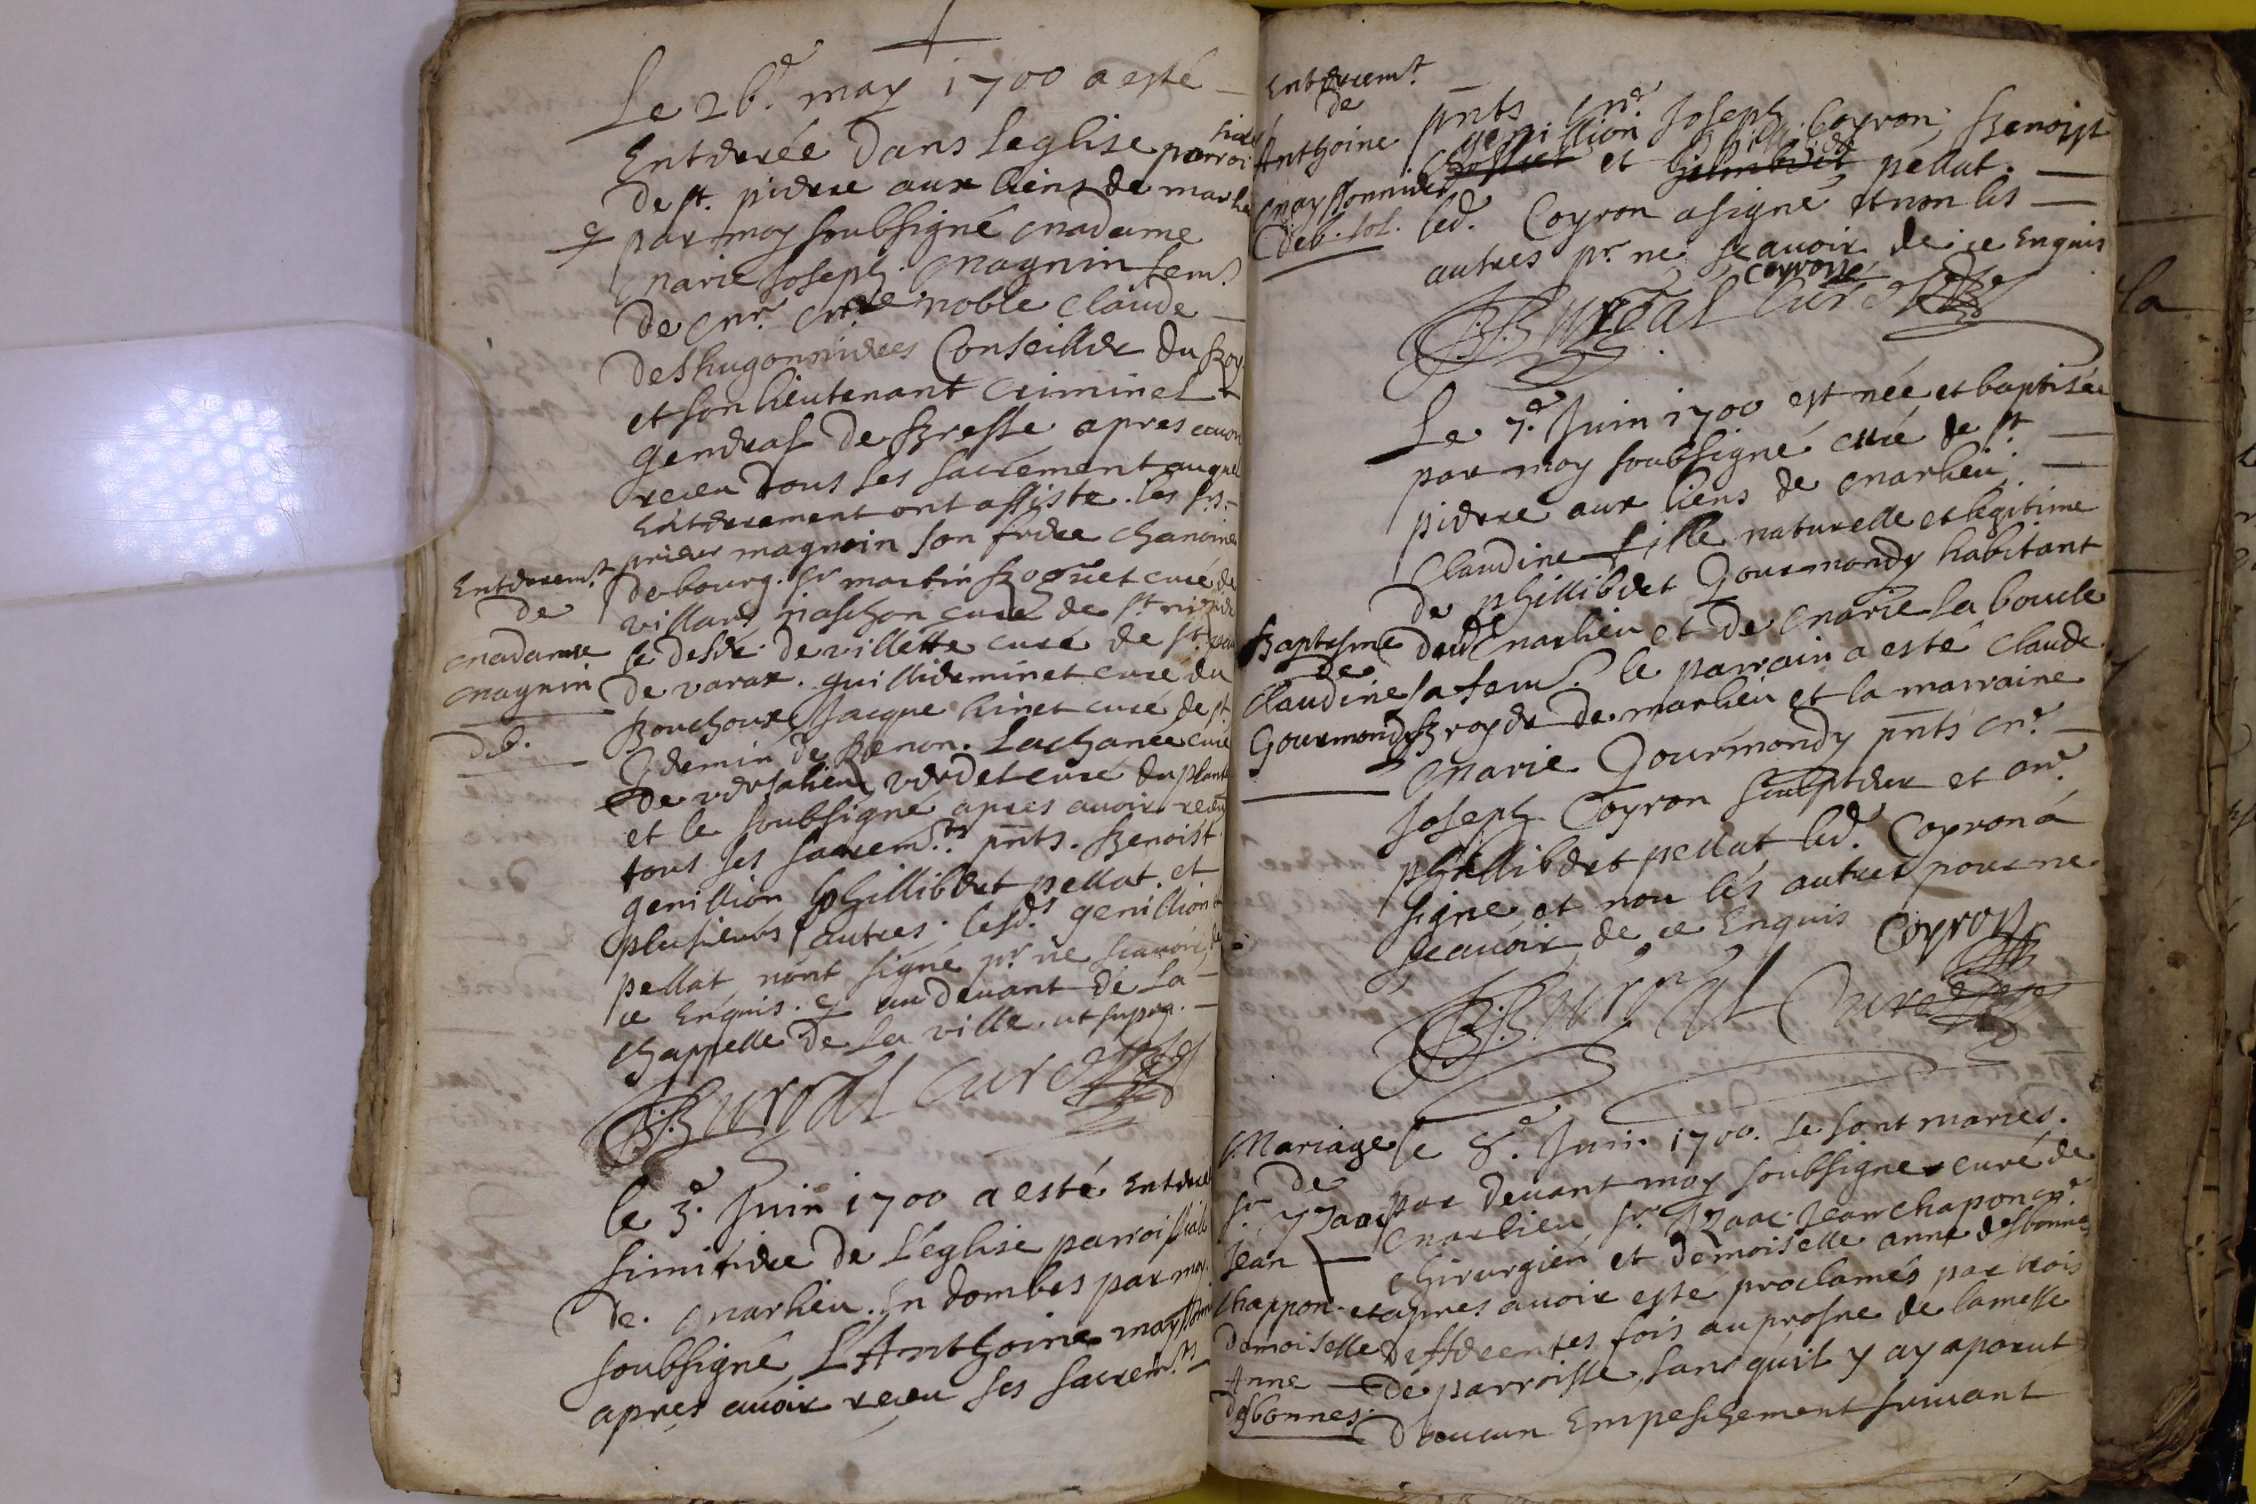 Le 26.e may 1700 a esté
Enterrée dans leglise parroi
siale
de st. pierre aux liens de marlieu
par moy soubsigné madame
marie Joseph magnin fem.e
de mr. me noble claude
deshugonnieres Conseiller du Roy
et son lieutenant criminel
general de Bresse apres avoir
receu tous ses sacrement auquel
Enterrement ont assiste. les srs.
prieur magnin son frere chanoine
de bourg. sr martin Boguet curé de
villars curé de st
le desdr. de villette curé de st
de varax. guilliermin et curé du
Bouchoux Jacque curé de st
germin de Renon. Lachanée curé
de versalieu verdet curé du plant
et le soubsigné apres avoir receu
tous ses sacrem.ts pnts. Benoist
genillion phillibert pellat et
plusieurs autres. lesd. genillion et
pellat nont signé pr. ne scavoir de
ce Enquis. au devant de la
chappelle de la ville. ut supra.
B. Burral curé
Enterrem.t
de
madame
magnin
deb.
le 3.e Juin 1700 a esté Enterré
simitiere de L'église parroissiale
de marlieu En dombes par moy
soubsigné L'Anthoine mayssonnier
apres avoir receu ses sacrem.ts
Enterrem.t
de
Anthoine
mayssonnier
deb. sol.
pnts me Joseph Coyron, Benoist
genillion phillibert
et pellat.
led. Coyron a signé et non les
autres pr. ne scavoir de ce Enquis
Coyron
B. Burral curé
Le 7.e Juin 1700 est née et baptisée
par moy soubsigné curé de st
pierre aux liens de marlieu
Claudine fille naturelle et legitime
de phillibert Gourmondy habitant
dud marlieu et de marie la boucle
sa fem.e le parrain a esté claude
Broyer de marlieu et la marraine
Marie Gourmondy pnts me.
Joseph Coyron sculpteur et me.
phillibert pellat led. Coyron a
signe et non les autres pour ne
scavoir de ce Enquis Coyron
B. Burral Curé
Baptesme
de
claudine
Gourmondy
Mariage
de
sr. Yzaac
Jean
chappon et
demoiselle
Anne
desbonnes.
le 8.e Juin 1700. se sont mariés.
par devant moy soubsigné curé de
marlieu sr. Izaac Jean chapon me.
chirurgien et demoiselle anne desbonnes
apres avoir esté proclamés par trois
differentes fois au prosne de la messe
de parroisse, sans quil y ay aparut
daucun Empeschement suivant
la